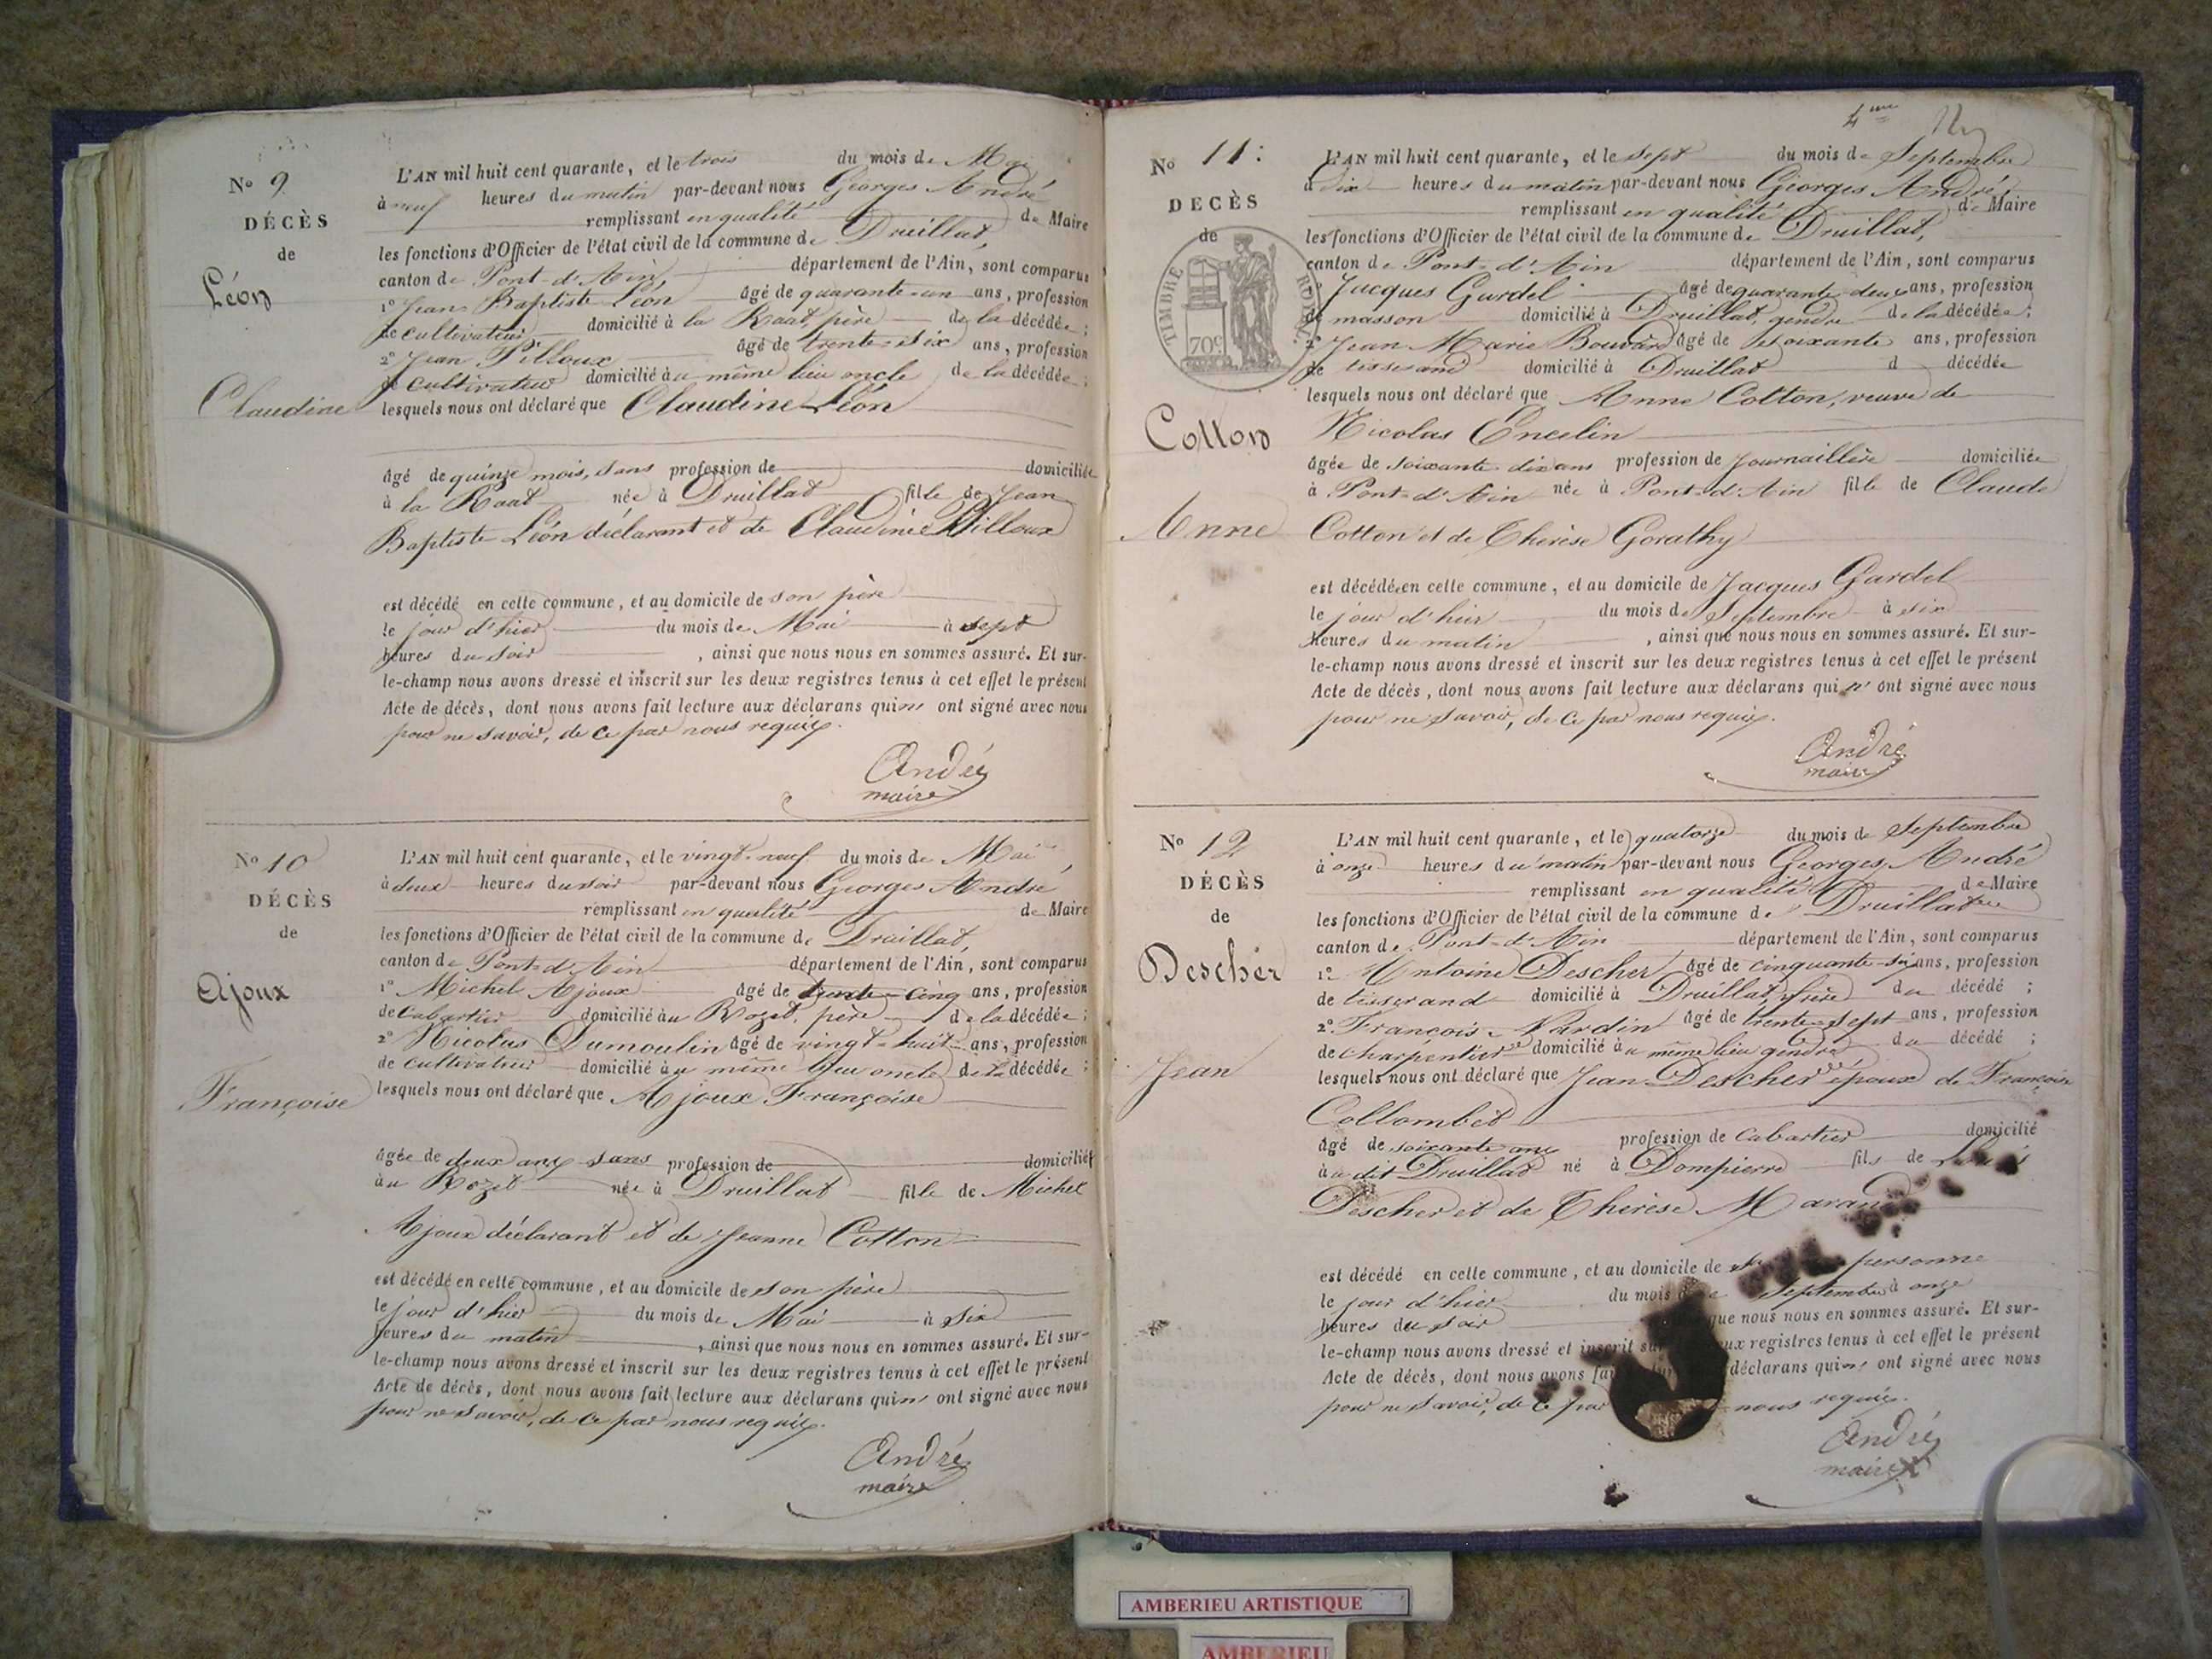 No 9
DÉCÈS
de
Léon
Claudine
L'AN mil huit cent quarante, et le trois du mois de Mai
à neuf heures du matin par-devant nous Georges André
remplissant en qualité de Maire
les fonctions d'Officier de l'état civil de la commune de Druillat,
canton de Pont-d'Ain, département de l'Ain, sont comparus
1º Jean Baptiste Léon âgé de quarante-un ans, profession
de cultivateur domicilié à la Raat, père de la décédée;
2º Jean Pilloux âgé de trente-six ans, profession
de cultivateur domicilié au même lieu oncle de la décédée;
lesquels nous ont déclaré que Claudine Léon
âgé de quinze mois, sans profession de domiciliée
à la Raat née à Druillat fille de Jean
Baptiste Léon déclarant et de Claudine Pilloux
est décédé en cette commune, et au domicile de son père
le jour d'hier du mois de Mai à sept
heures du soir, ainsi que nous nous en sommes assuré. Et sur-
le-champ nous avons dressé et inscrit sur les deux registres tenus à cet effet le présent
Acte de décès, dont nous avons fait lecture aux déclarans qui n' ont signé avec nous
pour ne savoir, de ce par nous requis.
André
maire
No 10
DÉCÈS
de
Ajoux
Françoise
L'AN mil huit cent quarante, et le vingt-neuf du mois de Mai
à deux heures du soir par-devant nous Georges André
remplissant en qualité de Maire
les fonctions d'Officier de l'état civil de la commune de Druillat,
canton de Pont-d'Ain département de l'Ain, sont comparus
1º Michel Ajoux âgé de trente-cinq ans, profession
de cabartier domicilié au Rozet, père de la décédée;
2º Nicolas Dumoulin âgé de vingt-huit ans, profession
de cultivateur domicilié au même lieu oncle de la décédée;
lesquels nous ont déclaré que Ajoux Françoise
âgée de deux ans sans profession de domiciliée
au Rozet née à Druillat fille de Michel
Ajoux déclarant et de Jeanne Cotton
est décédé en cette commune, et au domicile de son père
le jour d'hier du mois de Mai à six
heures du matin, ainsi que nous nous en sommes assuré. Et sur-
le-champ nous avons dressé et inscrit sur les deux registres tenus à cet effet le présent
Acte de décès, dont nous avons fait lecture aux déclarans qui n' ont signé avec nous
pour ne savoir, de ce par nous requis.
André
maire
4me
No 11:
DECÈS
de
TIMBRE ROYAL
70c
Cotton
Anne
L'AN mil huit cent quarante, et le sept du mois de Septembre
à dix heures du matin par-devant nous Georges André,
remplissant en qualité de Maire
les fonctions d'Officier de l'état civil de la commune de Druillat,
canton de Pont-d'Ain département de l'Ain, sont comparus
Jacques Gardel âgé de quarante-deux ans, profession
de masson domicilié à Druillat, gendre de la décédée;
2º Jean Marie Bouvard âgé de soixante ans, profession
de tisserand domicilié à Druillat d décédée
lesquels nous ont déclaré que Anne Cotton, veuve de
Nicolas Encelin
âgée de soixante-dix ans profession de Journaillière domiciliée
à Pont-d'Ain née à Pont-d'Ain fille de Claude
Cotton et de Thérèse Gorathy
est décédée en cette commune, et au domicile de Jacques Gardel
le jour d'hier du mois de Septembre à six
heures du matin, ainsi que nous nous en sommes assuré. Et sur-
le-champ nous avons dressé et inscrit sur les deux registres tenus à cet effet le présent
Acte de décès, dont nous avons fait lecture aux déclarans qui n' ont signé avec nous
pour ne savoir, de ce par nous requis.
André
maire
No 12
DÉCÈS
de
Descher
Jean
L'AN mil huit cent quarante, et le quatorze du mois de Septembre
à onze heures du matin par-devant nous Georges André
remplissant en qualité de Maire
les fonctions d'Officier de l'état civil de la commune de Druillat
canton de Pont-d'Ain département de l'Ain, sont comparus
1º Antoine Descher âgé de cinquante-six ans, profession
de tisserand domicilié à Druillat, frère du décédé;
2º François Nardin âgé de trente-sept ans, profession
de charpentier domicilié au même lieu gendre du décédé;
lesquels nous ont déclaré que Jean Descher époux de Françoise
Collombet
âgé de soixante ans profession de Cabartier domicilié
au dit Druillat né à Dompierre fils de
Descher et de Thérèse
est décédé en cette commune, et au domicile de personne
le jour d'hier du mois de Septembre à onze
heures du soir que nous nous en sommes assuré. Et sur-
le-champ nous avons dressé et inscrit registres tenus à cet effet le présent
Acte de décès, dont nous avons déclarans qui n' ont signé avec nous
pour ne savoir, de ce par nous requis.
André
maire
AMBERIEU ARTISTIQUE
AMBERIEU